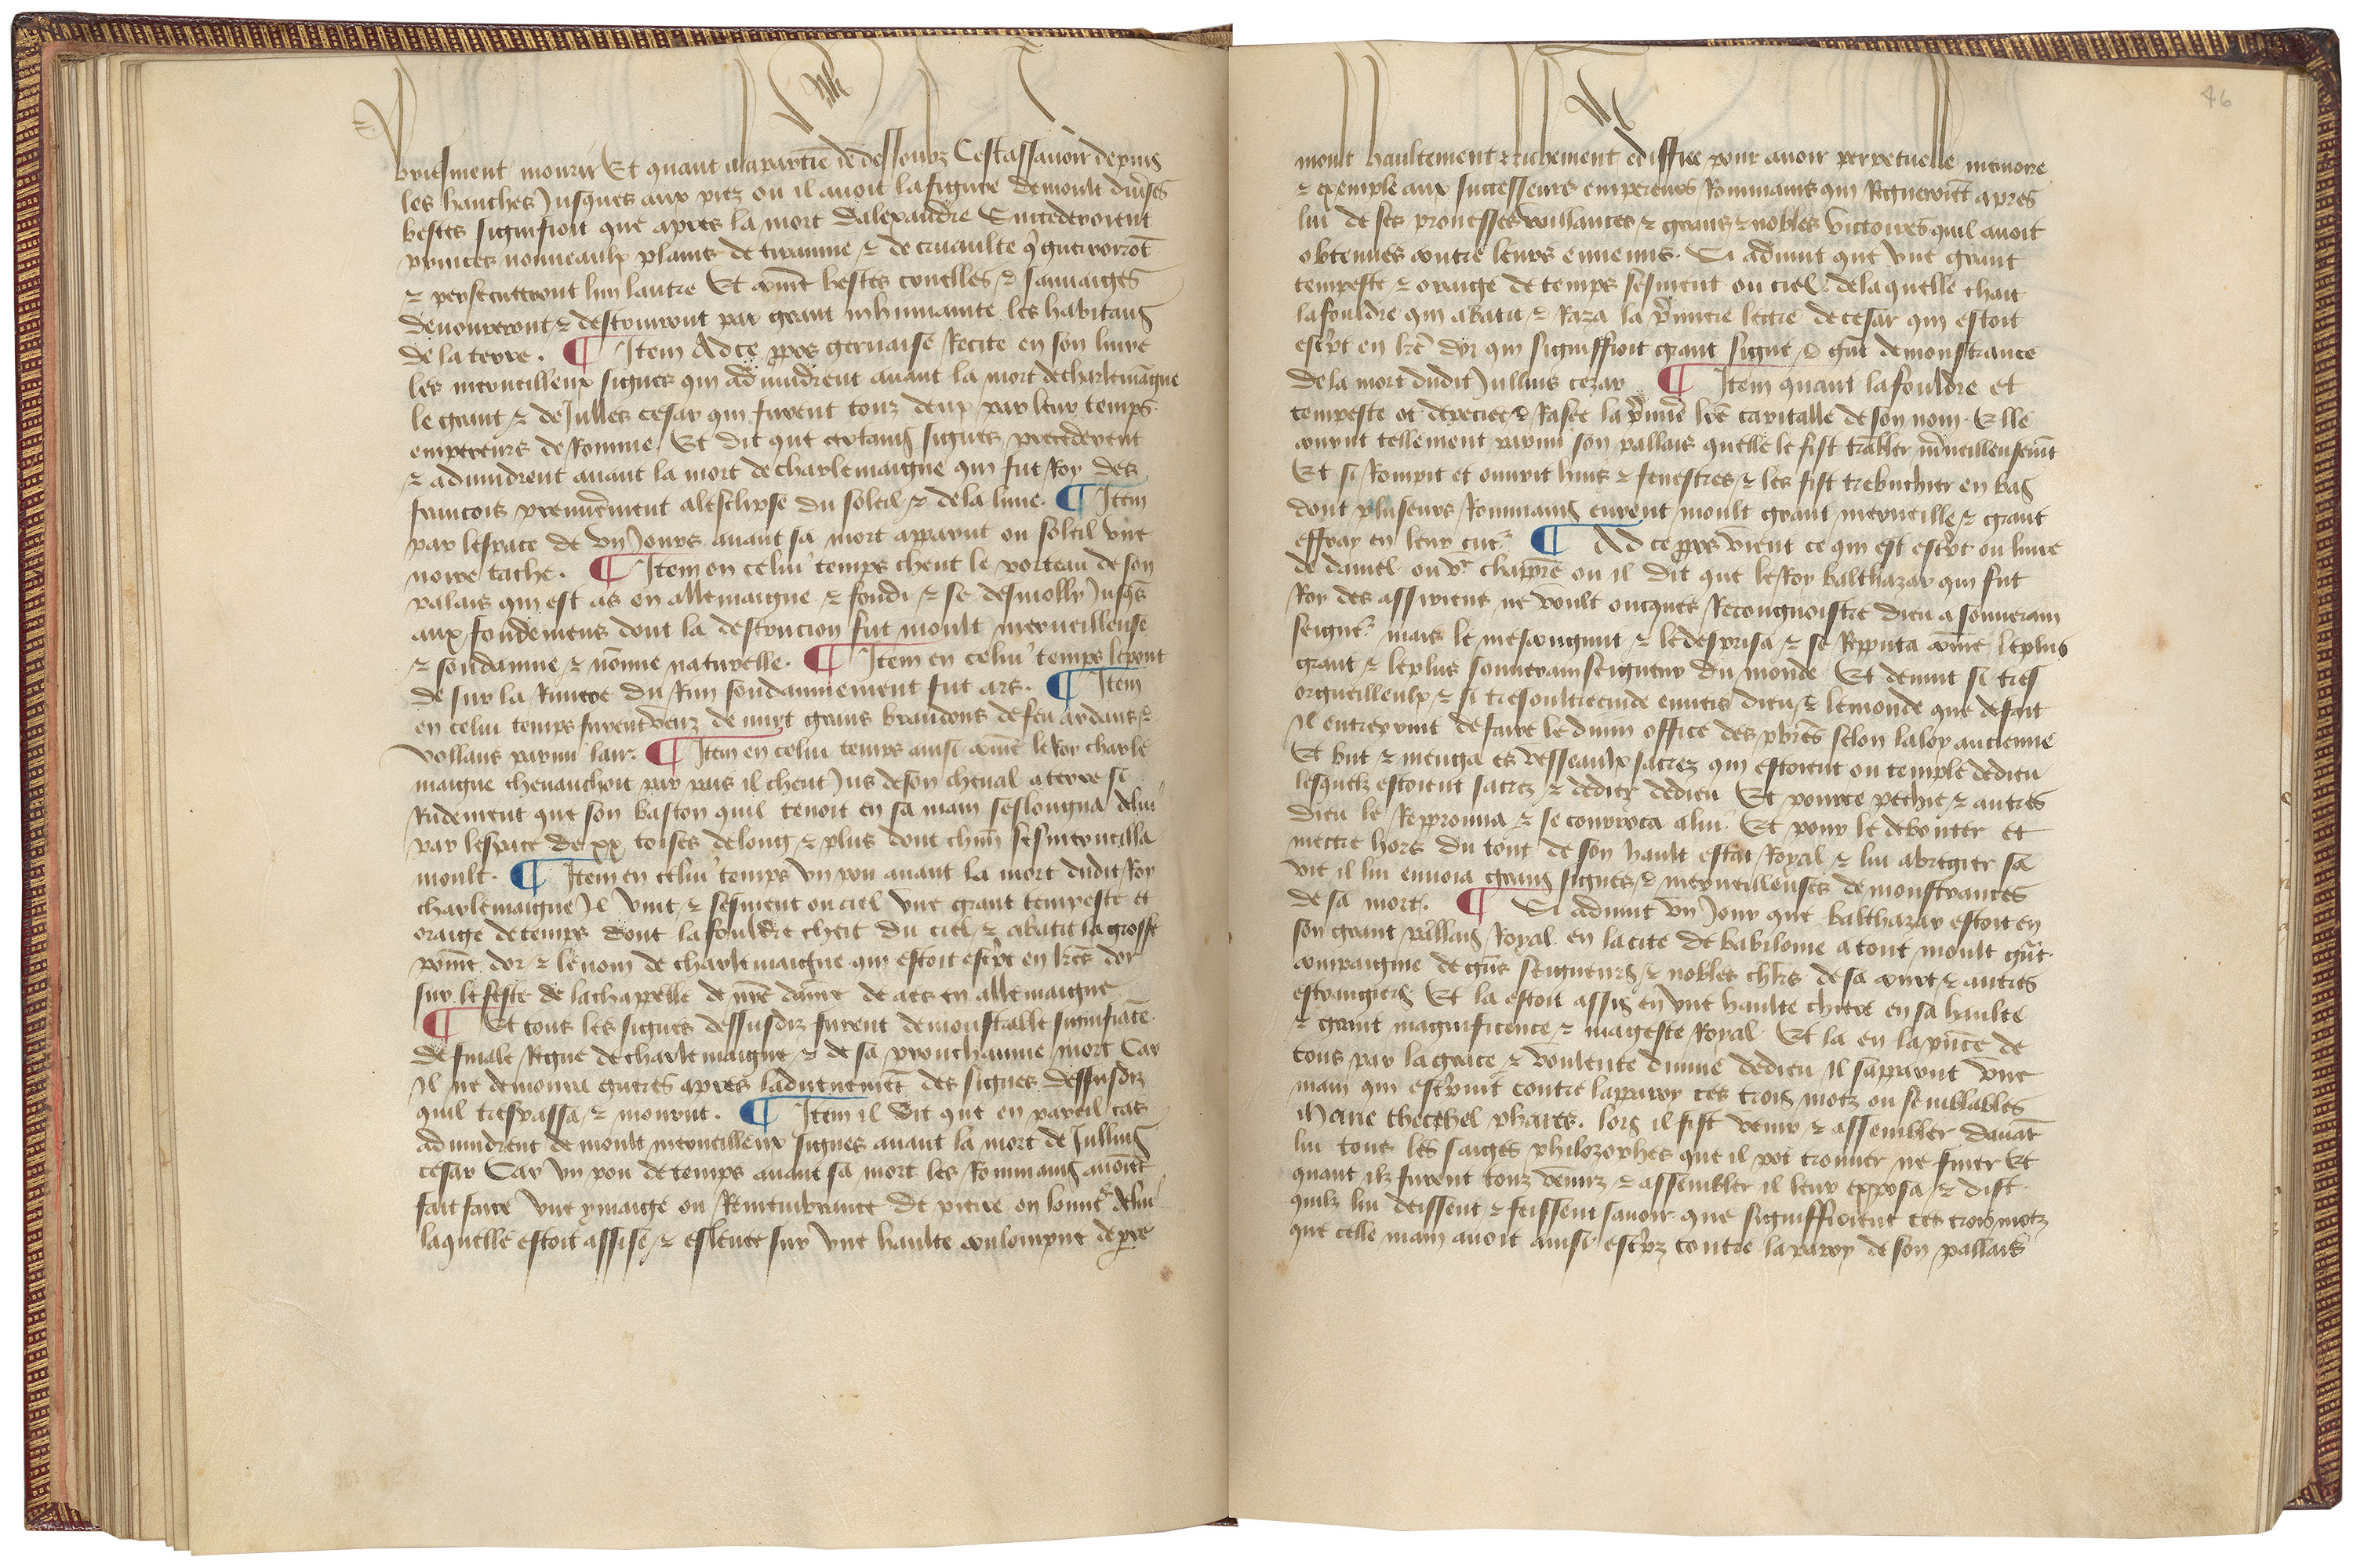 briefment mourir Et quant a la partie de dessoubz Cestassauoir depuis
les hanches Jusques aux piez ou il auoit la figure de moult diu̾ses
bestes signifioit que apres la mort dalexandre Succederoient
princes nouueaulx plains de tirannie ⁊ de cruaulte q̾ guerroirōt
⁊ persecuteront lun lautre Et cōme bestes cruelles ⁊ sauuaiges
deuoureront ⁊ destruiront par grant inhumanite les habitans
de la terre . ¶ Item Ad ce ppos geruaise Recite en son liure
les merueilleux signes qui aduindrent auant la mort de charlemaigne
le grant ⁊ de Julles cesar qui furent touz deux par leur temps
empereurs de Romme . Et dit que certains signes precederent
⁊ aduindrent auant la mort de charlemaigne qui fut Roy des
francois premieremēt alesclipse du soleil ⁊ de la lune . ¶ Item
par lespace de vij Jours auant sa mort apparut ou soleil vne
noire tache . ¶ Item en celui temps cheut le porteau de son
palais qui est as en allemaigne ⁊ fondi ⁊ se desmolly Jusq̄s
aux fondemens dont la destrucion fut moult merueilleuse
⁊ soudainne ⁊ nōnue naturelle . ¶ Item en celui temps le pont
de sur la Riuiere du Rin soudainnement fut ars . ¶ Item
en celui temps furent veuz de nuyt grans brandons de feu ardans ⁊
vollans parmi lair . ¶ Item en celui temps ainsi cōme le Roy charle
maigne cheuauchoit par pais il cheut Jus de son cheual a terre si
Rudement que son baston quil tenoit en sa main seslongna de lui
par lespace de xx toises de long ⁊ plus dont chūn sesmerueilla
moult . ¶ Item en celui temps vn pou auant la mort dudit Roy
charlemaigne Il vint ⁊ sesment ou ciel vne grant tempeste et
oraige de temps dont la fouldre cheit du ciel ⁊ abatit la grosse
pōme dor ⁊ le nom de charlemaigne qui estoit esc̾pt en lr̄es dor
sur le feste de la chapelle de nr̄e dame de aes en allemaigne
¶ Et tous les signes dessusdiz furent demonstrable signifiāce
de finable Regne de charlemaigne ⁊ de sa prouchainne mort Car
Il ne demoura gueres apres laduenemēt des signes dessusdiz
quil trespassa ⁊ mourut . ¶ Item il dit que en pareil cas
aduindrent de moult merueilleux signes auant la mort de Julius
cesar Car vn pou de temps auant sa mort les Rommains auoiēt
fait faire vne ymaige ou Remembrance de pierre en lonneᷣ de lui
laquelle estoit assise ⁊ esleuee sur vne haulte coulompne de pr̄re
46
moult haultement ⁊ richement ediffiee pour auoir perpetuelle memoire
⁊ exemple aux successeurs empereurs Rommains qui Regneroiēt apres
lui de ses prouesses vaillances ⁊ grans ⁊ nobles victoires quil auoit
obtenues contre leurs ennemis . Si aduint que vne grant
tempeste ⁊ oraige de temps sesment ou ciel de laquelle chait
la fouldre qui abatit ⁊ Raza la p̄miere lectre de cesar qui estoit
esc̾pt en lr̄e dor qui signiffioit grant signe ⁊ gr̄nt demonstrance
de la mort dudit Jullius cezar . ¶ Item quant la fouldre et
tempeste ot depeciee ⁊ Rasee la p̄miere lr̄e capitalle de son nom . Elle
courut tellement parmi son pallais quelle le fist trābler m̄ueilleusemēt
Et si Rompit et ouurit huis ⁊ fenestres ⁊ les fist trebuchier en bas
dont pluseurs Rommains eurent moult grant merueille ⁊ grant
effray en leur cueᷣ ¶ Ad ce ppos vient ce qui est esc̾pt ou liure
de daniel ou vͤ chappr̄e ou il dit que le Roy balthazar qui fut
Roy des assiriens ne voult oncques Recongnoistre dieu a souuerain
seigneᷣ mais le mescongnut ⁊ le desprisa ⁊ se Repputa cōme le plus
grant ⁊ le plus souuerain seigneur du monde Et deuint si tres
orgueilleulx ⁊ si tresoultrecuide enuers dieu ⁊ le monde que de fait
Il entreprint de faire le diuin office des pb̄res selon la loy ancienne
Et but ⁊ menga es vesseaulx sacrez qui estoient ou temple de dieu
lesquelz estoient sacrez ⁊ dediez de dieu Et pour ce pechie ⁊ autres
dieu le Repprouua ⁊ se courroca a lui . Et pour le debouter et
mettre hors du tout de son hault estat Royal ⁊ lui abregier sa
vie il lui enuoia grans signes ⁊ merueilleuses demonstrances
de sa mort . ¶ Si aduint vn Jour que balthazar estoit en
son grant pallais Royal en la cite de babiloine a tout moult gr̄nt
compaignie de gr̄ns seigneurs ⁊ nobles chl̄rs de sa court ⁊ autres
estrangiers Et la estoit assis en vne haulte chiere en sa haulte
⁊ grant magnificence ⁊ mageste Royal . Et la en la p̄nce de
tous par la grace ⁊ voulente diuine de dieu Il sapparut vne
main qui esc̾puit contre la paroy ces trois motz ou semblables
Mane thechel phares . lors il fist venir ⁊ assembler deuāt
lui tous les saiges philozophes que il pot trouuer ne finer Et
quant ilz furent touz venuz ⁊ assembler il leur exposa ⁊ dist
quilz lui deissent ⁊ feissent sauoir que signiffioient ces trois motz
que celle main auoit ainsi esc̾pz contre la paroy de son pallais